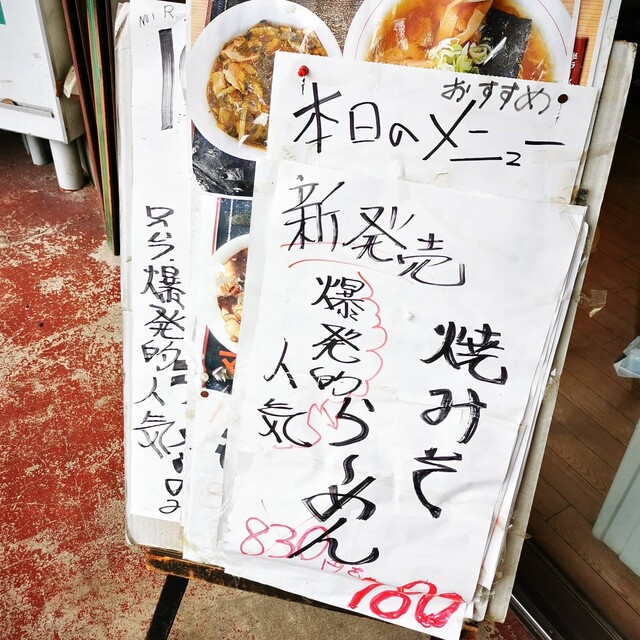 おすすめ
本日のメニュー
新発売
焼みそ
らーめん
爆発的
人気
830円を
700
爆発的人気